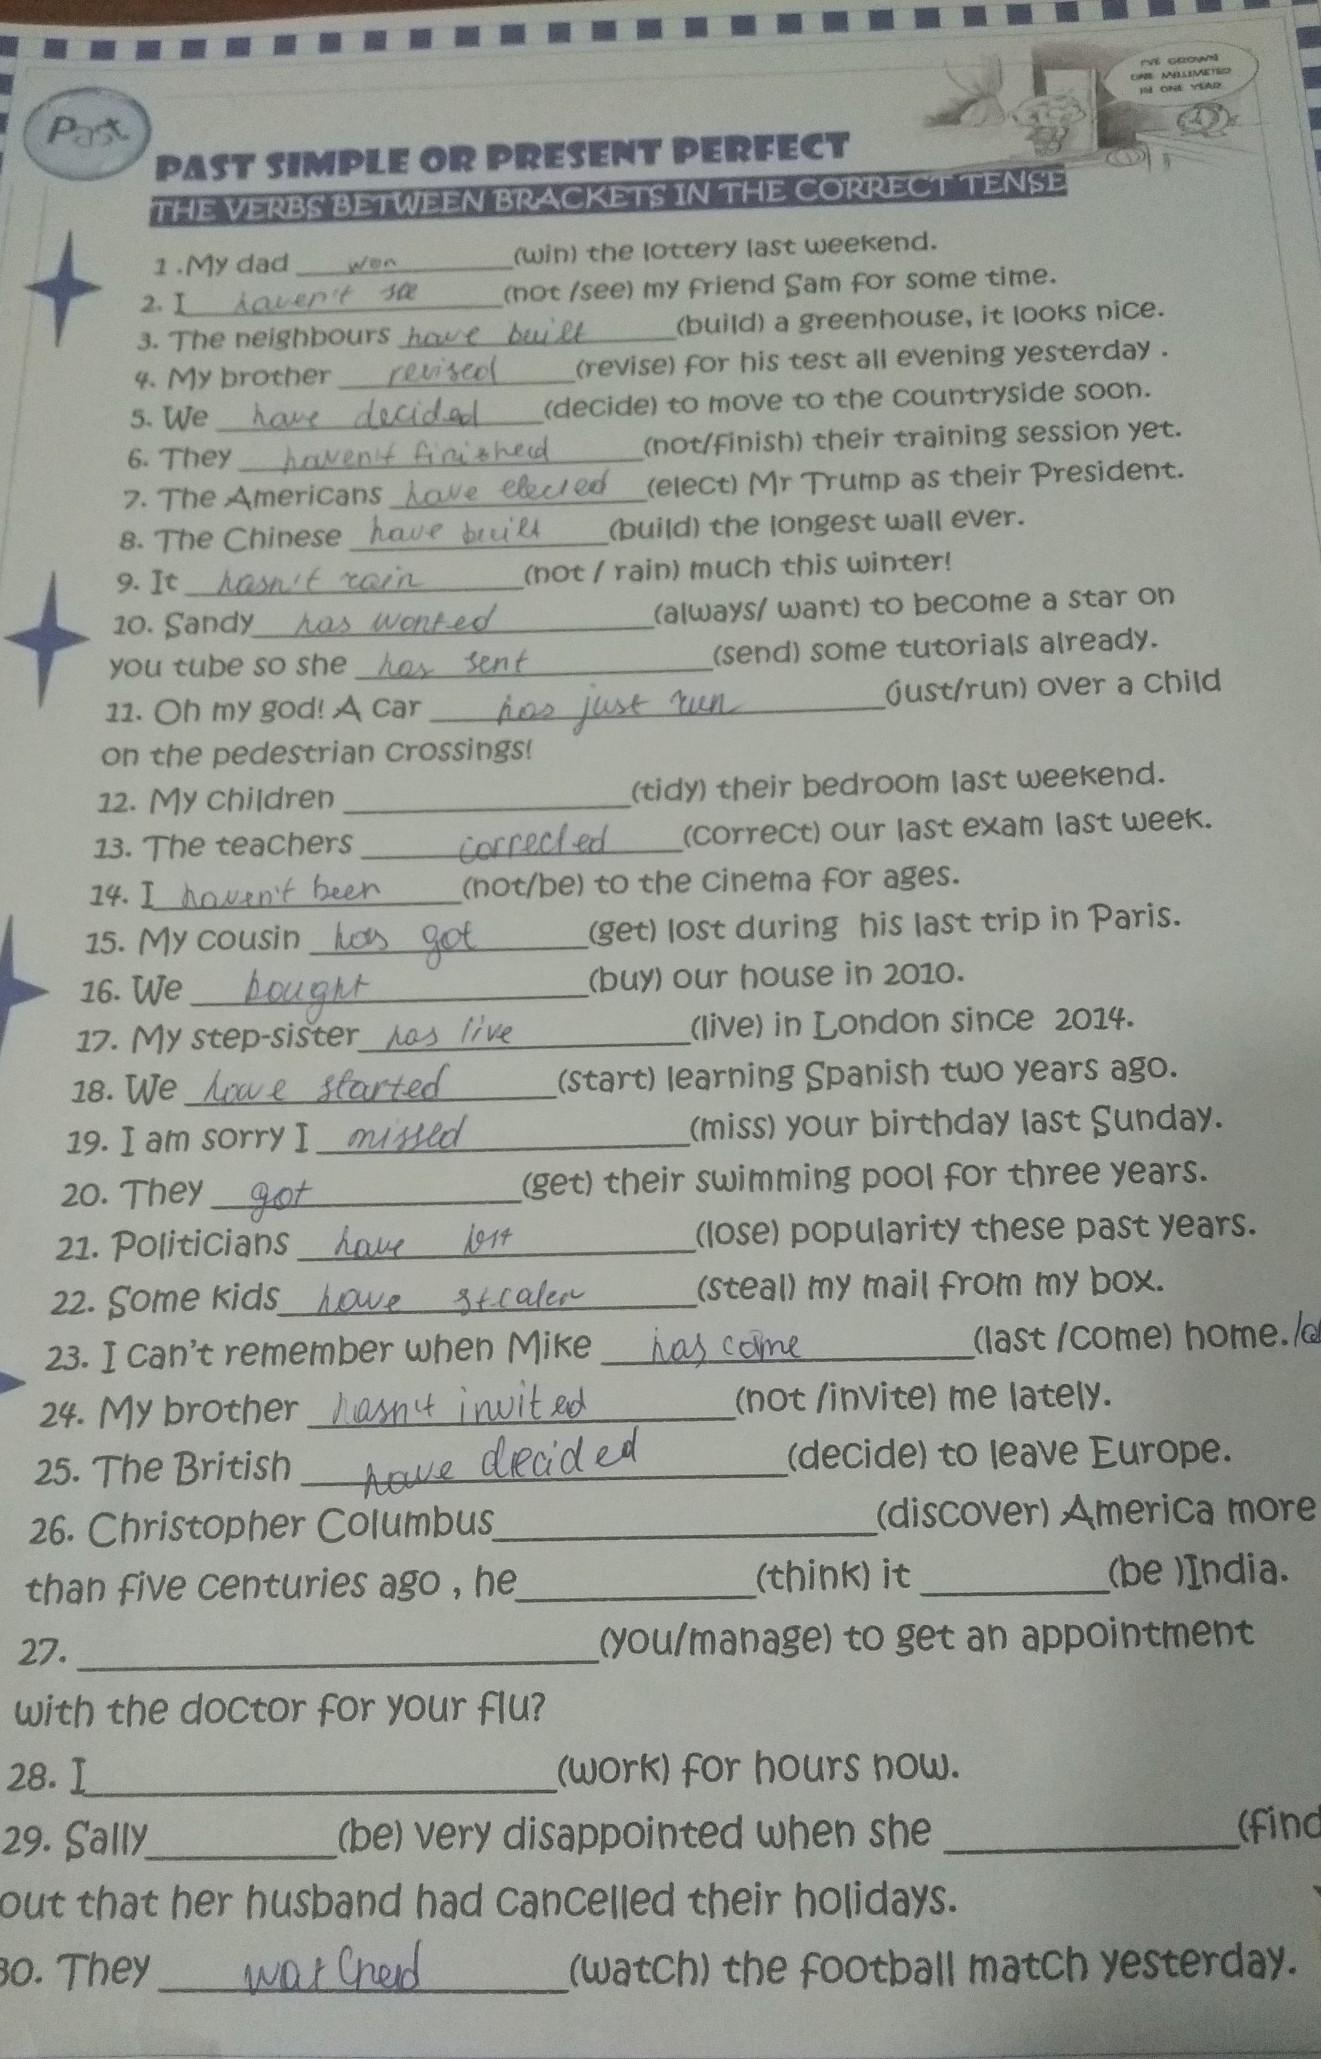 I'VE GROWN
ONE MILLIMETER
IN ONE YEAR
Past
PAST SIMPLE OR PRESENT PERFECT
THE VERBS BETWEEN BRACKETS IN THE CORRECT TENSE
1 .My dad won (win) the lottery last weekend.
2. I haven't see (not /see) my friend Sam for some time.
3. The neighbours have built (build) a greenhouse, it looks nice.
4. My brother revised (revise) for his test all evening yesterday .
5. We have decided (decide) to move to the countryside soon.
6. They haven't finished (not/finish) their training session yet.
7. The Americans have elected (elect) Mr Trump as their President.
8. The Chinese have built (build) the longest wall ever.
9. It hasn't rain (not / rain) much this winter!
10. Sandy has wanted (always/ want) to become a star on
you tube so she has sent (send) some tutorials already.
11. Oh my god! A car has just run (just/run) over a child
on the pedestrian crossings!
12. My children (tidy) their bedroom last weekend.
13. The teachers corrected (correct) our last exam last week.
14. I haven't been (not/be) to the cinema for ages.
15. My cousin has got (get) lost during his last trip in Paris.
16. We bought (buy) our house in 2010.
17. My step-sister has live (live) in London since 2014.
18. We have started (start) learning Spanish two years ago.
19. I am sorry I missed (miss) your birthday last Sunday.
20. They got (get) their swimming pool for three years.
21. Politicians have lost (lose) popularity these past years.
22. Some kids have stealen (steal) my mail from my box.
23. I can't remember when Mike has come (last /come) home.
24. My brother hasn't invited (not /invite) me lately.
25. The British have decided (decide) to leave Europe.
26. Christopher Columbus (discover) America more
than five centuries ago , he (think) it (be )India.
27. (you/manage) to get an appointment
with the doctor for your flu?
28. I (work) for hours now.
29. Sally (be) very disappointed when she (find
out that her husband had cancelled their holidays.
30. They watched (watch) the football match yesterday.